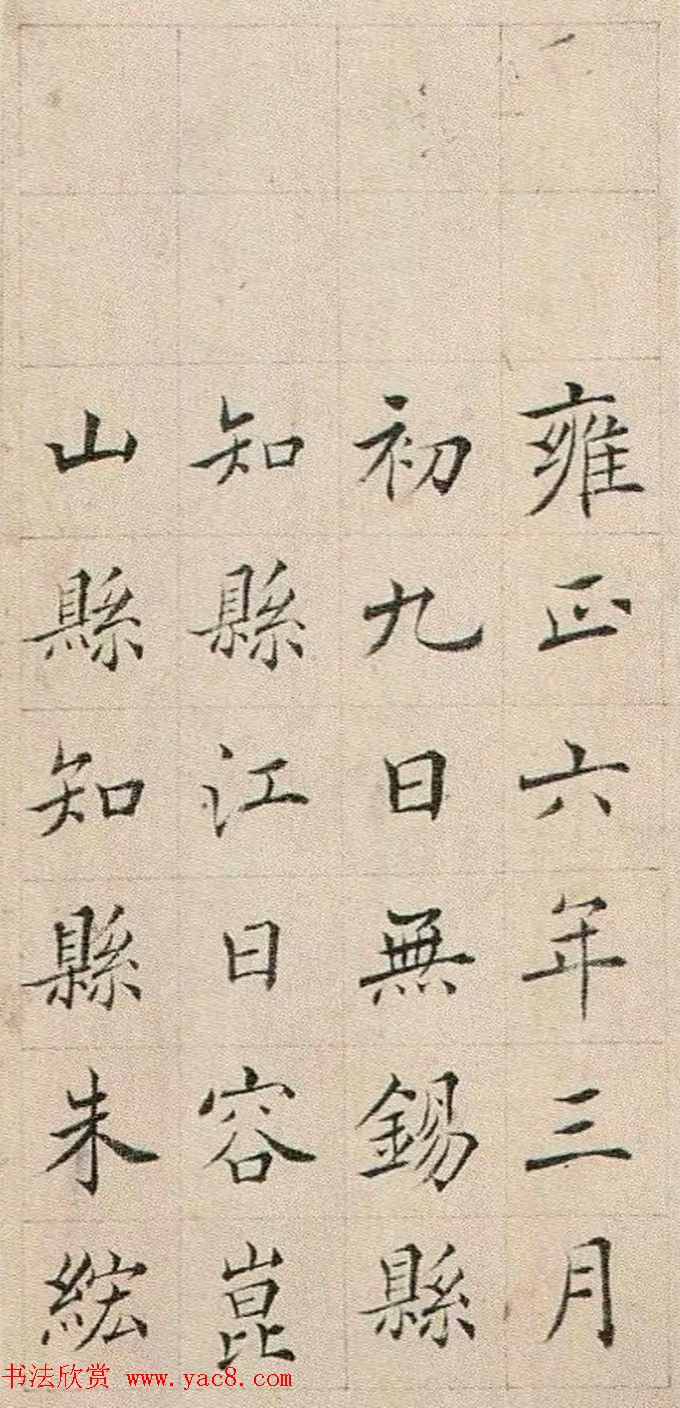 雍正六年三月
初九日無錫縣
知縣江日容崑
山縣知縣朱紘
书法欣赏 www.yac8.com